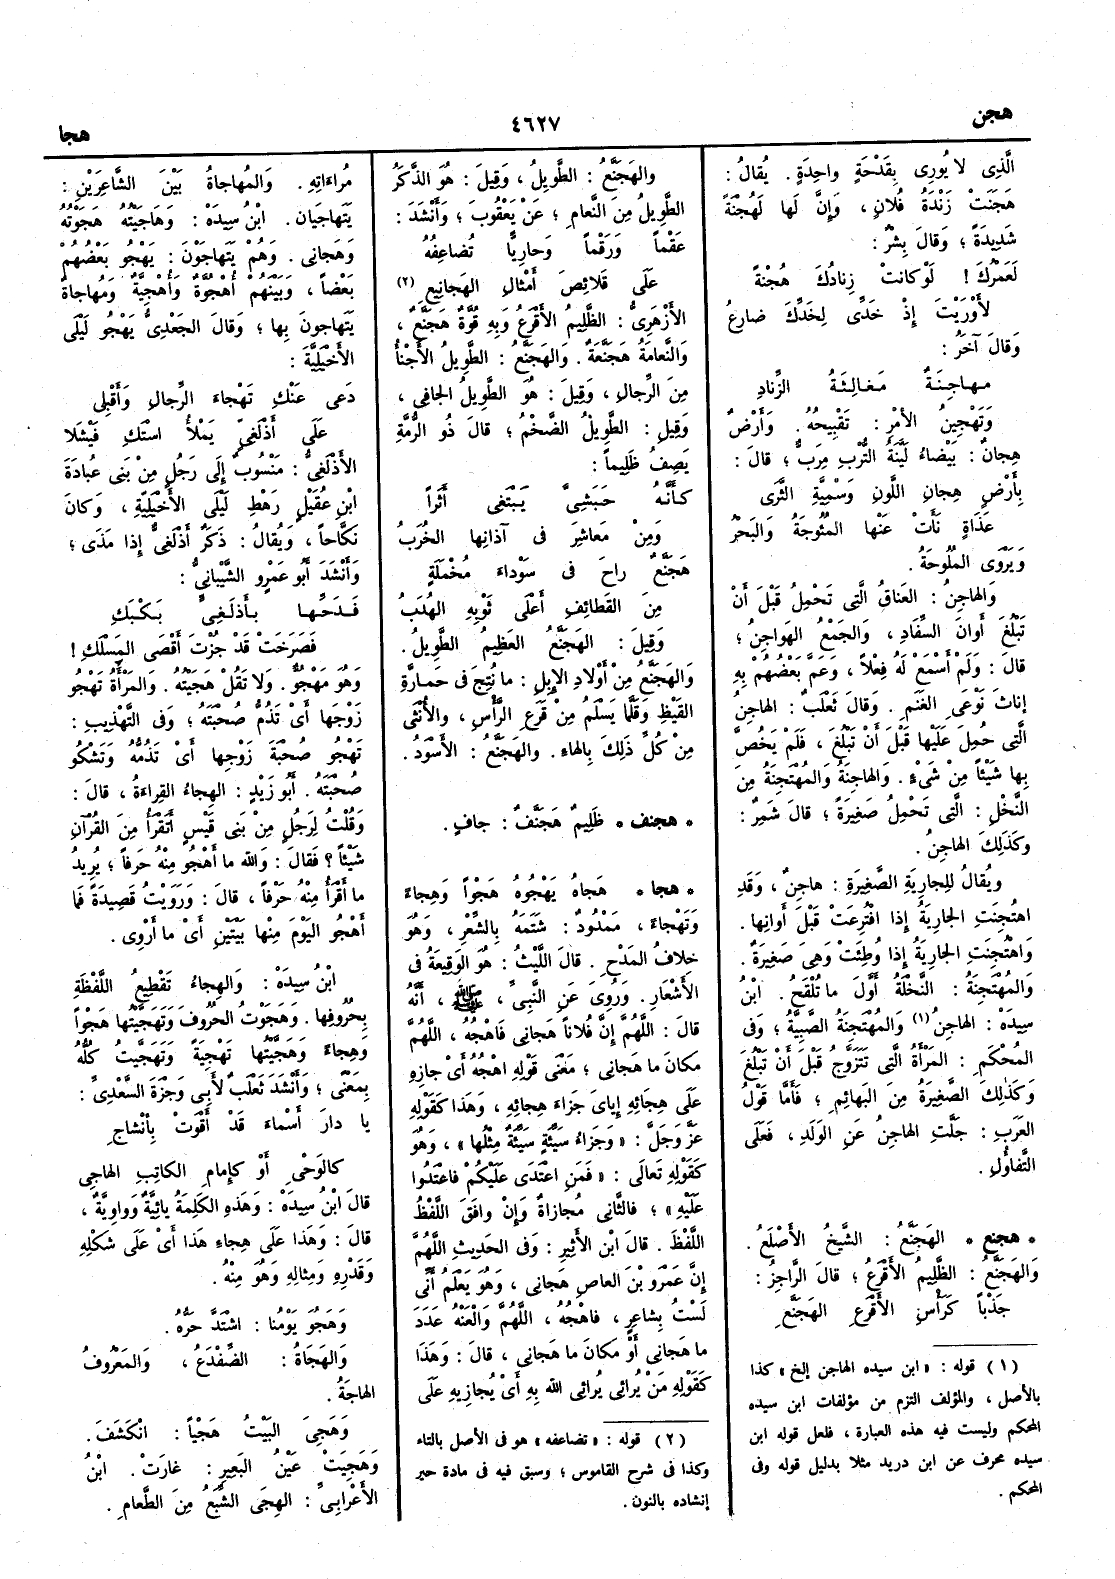 هجن
٤٦٢٧
هجا
الَّذِى لا يُورِى بِقَدْحَةٍ واحِدَةٍ . يُقالُ :
هَجَنَتْ زَنْدَةُ فُلانٍ ، وَإِنَّ لَها لَهُجْنَةً
شَدِيدَةً ؛ وَقالَ بِشْرٌ :
لَعَمْرُكَ ! لَوْ كانَتْ زِنادُكَ هُجْنَةً
لَأَوْرَيْتَ إِذْ خَدِّى لِخَدِّكَ ضارِعُ
وَقالَ آخَرُ :
مهاجِنَةً مَغالِثَةُ الزِّنادِ
وَتَهْجِينُ الأَمْرِ : تَقْبِيحُهُ . وَأَرْضٌ
هِجانٌ : بَيْضاءُ لَيِّنَةُ التُّرْبِ مِرَبٌّ ؛ قالَ :
بِأَرْضٍ هِجانِ اللَّوْنِ وَسْمِيَّةِ الثَّرَى
عَذَاةٍ نَأَتْ عَنْها المُئُوجَةُ وَالبَحْرُ
وَيُرْوَى المُلُوحَةُ .
وَالهاجِنُ : العَناقُ الَّتِى تَحْمِلُ قَبْلَ أَنْ
تَبْلُغَ أَوانَ السِّفَادِ ، وَالجَمْعُ الهَواجِنُ ؛
قالَ : وَلَمْ أَسْمَعْ لَهُ فِعْلاً ، وَعَمَّ بَعْضُهُمْ بِهِ
إِناثَ نَوْعَىِ الغَنَمِ . وَقالَ ثَعْلَبٌ : الهاجِنُ
الَّتِى حُمِلَ عَلَيْها قَبْلَ أَنْ تَبْلُغَ ، فَلَمْ يَخُصَّ
بِها شَيْئاً مِنْ شَىْءٍ . وَالهاجِنَةُ وَالمُهْتَجِنَةُ مِنَ
النَّخْلِ : الَّتِى تَحْمِلُ صَغِيرَةً ؛ قالَ شَمِرٌ :
وَكَذَلِكَ الهاجِنُ .
وَيُقالُ لِلجارِيَةِ الصَّغِيرَةِ : هاجِنٌ ، وَقَدِ
اهْتُجِنَتِ الجارِيَةُ إِذا افْتُرِعَتْ قَبْلَ أَوانِها .
وَاهْتُجِنَتِ الجارِيَةُ إِذا وُطِئَتْ وَهِىَ صَغِيرَةٌ .
وَالمُهْتَجِنَةُ : النَّخْلَةُ أَوَّلَ ما تُلْقَحُ . ابْنُ
سِيدَهْ : الهاجِنُ (١) وَالمُهْتَجِنَةُ الصَّبِيَّةُ ؛ وَفى
المُحْكَمِ : المَرْأَةُ الَّتِى تَتَزَوَّجُ قَبْلَ أَنْ تَبْلُغَ
وَكَذَلِكَ الصَّغِيرَةُ مِنَ البَهائِمِ ؛ فَأَمَّا قَوْلُ
العَرَبِ : جَلَّتِ الهاجِنُ عَنِ الوَلَدِ ، فَعَلَى
التَّفاؤُلِ .
* هجنع * الهَجَنَّعُ : الشَّيْخُ الأَصْلَعُ .
وَالهَجَنَّعُ : الظَّلِيمُ الأَقْرَعُ ؛ قالَ الرَّاجِزُ :
جَذْباً كَرَأْسِ الأَقْرَعِ الهَجَنَّعِ
(١) قوله : « ابن سيده الهاجن إلخ » كذا
بالأصل ، والمؤلف التزم من مؤلفات ابن سيده
المحكم وليست فيه هذه العبارة ، فلعل قوله ابن
سيده محرف عن ابن دريد مثلا بدليل قوله وفى
المحكم .
وَالهَجَنَّعُ : الطَّوِيلُ ، وَقِيلَ : هُوَ الذَّكَرُ
الطَّوِيلُ مِنَ النَّعامِ ؛ عَنْ يَعْقُوبَ ؛ وَأَنْشَدَ :
عَقْماً وَرَقْماً وَحارِيًّا تُضاعِفُهُ
عَلَى قَلائِصَ أَمْثالِ الهَجانِيعِ (٢)
الأَزْهَرِىُّ : الظَّلِيمُ الأَقْرَعُ وَبِهِ قُوَّةٌ هَجَنَّعٌ ،
وَالنَّعامَةُ هَجَنَّعَةٌ . وَالهَجَنَّعُ : الطَّوِيلُ الأَجْنَأُ
مِنَ الرِّجالِ ، وَقِيلَ : هُوَ الطَّوِيلُ الجافِى ،
وَقِيلَ : الطَّوِيلُ الضَّخْمُ ؛ قالَ ذُو الرُّمَّةِ
يَصِفُ ظَلِيماً :
كَأَنَّهُ حَبَشِىٌّ يَبْتَغِى أَثَراً
وَمِنْ مَعاشِرَ فى آذانِها الخُرَبُ
هَجَنَّعٌ راحَ فى سَوْداءَ مُخْمَلَةٍ
مِنَ القَطائِفِ أَعْلَى ثَوْبِهِ الهُدَبُ
وَقِيلَ : الهَجَنَّعُ العَظِيمُ الطَّوِيلُ .
وَالهَجَنَّعُ مِنْ أَوْلادِ الإِبِلِ : ما نُتِجَ فى حمارَّةِ
القَيْظِ وَقَلَّما يَسْلَمُ مِنْ قَرَعِ الرَّأْسِ ، وَالأُنْثَى
مِنْ كُلِّ ذَلِكَ بِالهاءِ . والهَجَنَّعُ : الأَسْوَدُ .
* هجنف * ظَلِيمٌ هَجَنَّفٌ : جافٍ .
* هجا * هَجاهُ يَهْجُوهُ هَجْواً وَهِجاءً
وَتَهْجاءً ، مَمْدُودٌ : شَتَمَهُ بِالشِّعْرِ ، وَهُوَ
خِلافُ المَدْحِ . قالَ اللَّيْثُ : هُوَ الوَقِيعَةُ فى
الأَشْعارِ . وَرُوِىَ عَنِ النَّبِىِّ ، ﷺ ، أَنَّهُ
قالَ : اللَّهُمَّ إِنَّ فُلاناً هَجانِى فَاهْجُهُ ، اللَّهُمَّ
مَكانَ ما هَجانِى ؛ مَعْنَى قَوْلِهِ اهْجُهُ أَىْ جازِهِ
عَلَى هِجائِهِ إِياىَ جَزاءَ هِجائِهِ ، وَهَذا كَقَوْلِهِ
عَزَّ وَجَلَّ : « وَجَزاءُ سَيِّئَةٍ سَيِّئَةٌ مِثْلُها » ، وَهُوَ
كَقَوْلِهِ تَعالَى : « فَمَنِ اعْتَدَى عَلَيْكُمْ فاعْتَدُوا
عَلَيْهِ » ؛ فَالثَّانِى مُجازاةٌ وَإِنْ وافَقَ اللَّفْظُ
اللَّفْظَ . قالَ ابْنُ الأَثِيرِ : وَفى الحَدِيثِ اللَّهُمَّ
إِنَّ عَمْرَو بْنَ العاصِ هَجانِى ، وَهُوَ يَعْلَمُ أَنِّى
لَسْتُ بِشاعِرٍ ، فَاهْجُهُ ، اللَّهُمَّ وَالْعَنْهُ عَدَدَ
ما هَجانِى أَوْ مَكانَ ما هَجانِى ، قالَ : وَهَذَا
كَقَوْلِهِ مَنْ يُرائِى يُرائِى اللهُ بِهِ أَىْ يُجازِيهِ عَلَى
(٢) قوله : « تضاعفه » هو فى الأصل بالتاء
وكذا فى شرح القاموس ؛ وسبق فيه فى مادة حير
إنشاده بالنون .
مُراءَاتِهِ . وَالمُهاجاةُ بَيْنَ الشَّاعِرَيْنِ :
يَتَهاجَيان . ابْنُ سِيدَهْ : وَهَاجَيْتُهُ هَجَوْتُهُ
وَهَجانِى . وَهُمْ يَتَهاجَوْنَ : يَهْجُو بَعْضُهُمْ
بَعْضاً ، وَبَيْنَهُمْ أُهْجُوَّةٌ وَأُهْجِيَّةٌ وَمُهاجاةٌ
يَتَهاجَونَ بِها ؛ وَقالَ الجَعْدِىُّ يَهْجُو لَيْلَى
الأَخْيَلِيَّةَ :
دَعِى عَنْكِ تَهْجاءَ الرِّجالِ وَأَقْبِلِى
عَلَى أَذْلَغِىٍّ يَمْلأُ اسْتَكِ فَيْشَلا
الأَذْلَغِىُّ : مَنْسُوبٌ إِلَى رَجُلٍ مِنْ بَنِى عُبادَةَ
ابْنِ عُقَيْلٍ رَهْطِ لَيْلَى الأَخْيَلِيَّةِ ، وَكانَ
نَكَّاحاً ، وَيُقالُ : ذَكَرٌ أَذْلَغِىٌّ إِذا مَذَى ؛
وَأَنْشَدَ أَبُو عَمْرٍو الشَّيْبانِىُّ :
فَدَحَّها بِأَذْلَغِىٍّ بَكْبَكِ
فَصَرَخَتْ قَدْ جُزْتَ أَقْصَى المَسْلَكِ !
وَهُوَ مَهْجُوٌّ . وَلا تَقُلْ هَجَيْتُه . وَالمَرْأَةُ تَهْجُو
زَوْجَها أَىْ تَذُمُّ صُحْبَتَهُ ؛ وَفى التَّهْذِيبِ :
تَهْجُو صُحْبَةَ زَوْجِها أَىْ تَذُمُّهُ وَتَشْكُو
صُحْبَتَهُ . أَبُو زَيْدٍ : الهِجاءُ القِراءَةُ ، قالَ :
وَقُلْتُ لِرَجُلٍ مِنْ بَنِى قَيْسٍ أَتَقْرَأُ مِنَ القُرْآنِ
شَيْئاً ؟ فَقالَ : وَاللهِ ما أَهْجُو مِنْهُ حَرفاً ؛ يُرِيدُ
ما أَقْرَأُ مِنْهُ حَرْفاً ، قالَ : وَرَوَيْتُ قَصِيدَةً فَما
أَهْجُو اليَوْمَ مِنْها بَيْتَيْنِ أَىْ ما أَرْوِى .
ابْنُ سِيدَهْ : وَالهِجاءُ تَقْطِيعُ اللَّفْظَةِ
بِحُرُوفِها . وَهَجَوْتُ الحُرُوفَ وَتَهَجَّيْتُها هَجْواً
وَهِجاءً وَهَجَّيْتُها تَهْجِيَةً وَتَهَجَّيتُ كُلُّهُ
بِمَعْنًى ؛ وَأَنْشَدَ ثَعْلَبٌ لأَبِى وَجْزَةَ السَّعْدِىِّ :
يا دارَ أَسْماءَ قَدْ أَقْوَتْ بِأَنْشاجِ
كالوَحْىِ أَوْ كَإِمامِ الكاتِبِ الهاجِى
قالَ ابْنُ سِيدَهْ : وَهَذِهِ الكَلِمَةُ يائِيَّةٌ وَواوِيَّةٌ ،
قالَ : وَهَذا عَلَى هِجاءِ هَذا أَىْ عَلَى شَكْلِهِ
وَقَدْرِهِ وَمِثالِهِ وَهُوَ مِنْهُ .
وَهَجُوَ يَوْمُنا : اشْتَدَّ حَرُّهُ .
وَالهَجَاةُ : الضِّفْدَعُ ، وَالمَعْرُوفُ
الهاجَةُ .
وَهَجِىَ البَيْتُ هَجْياً : انْكَشَفَ .
وَهَجِيَتْ عَيْنُ البَعِيرِ : غارَتْ . ابْنُ
الأَعْرابِىِّ : الهِجَى الشِّبَعُ مِنَ الطَّعامِ .